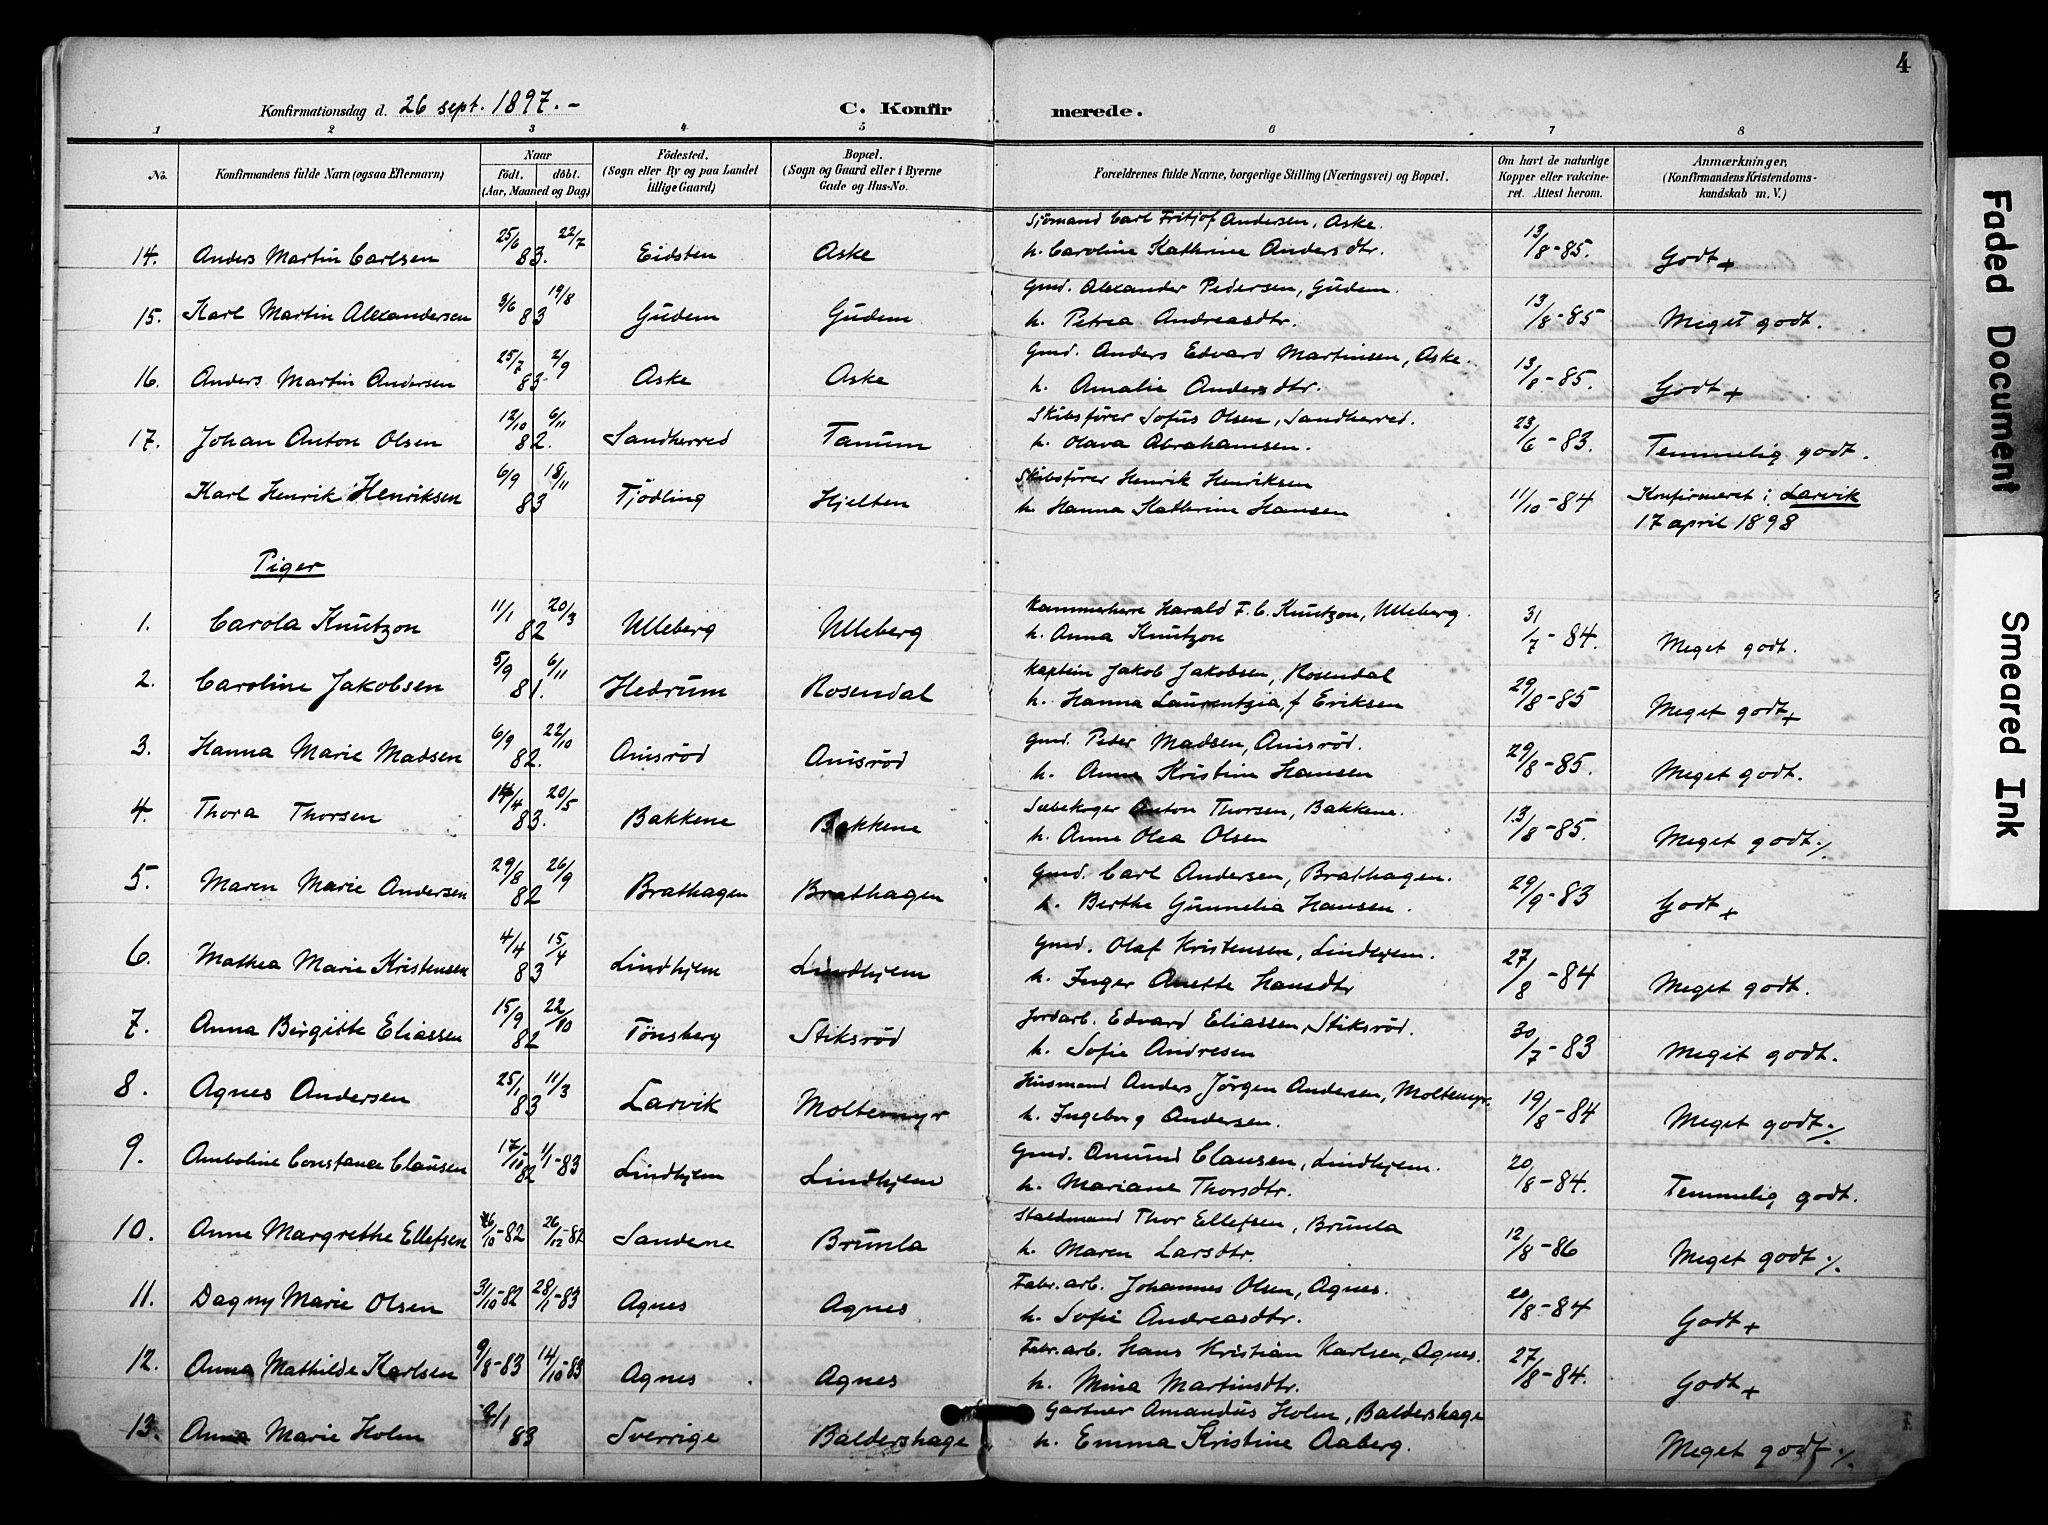 4
Konfirmationsdag d. 26 sept. 1897.- C. Konfirmerede.
1 2 3 4 5 6 7 8
No. Konfirmandens fulde Navn (ogsaa Efternavn) Naar födt. döbt. (Aar, Maaned og Dag) Födested. (Sogn eller By og paa Landet tillige Gaard) Bopæl. (Sogn og Gaard eller i Byerne Gade og Hus-No. Forældrenes fulde Navne, borgerlige Stilling (Næringsvei) og Bopæl. Om havt de naturlige Kopper eller vakcineret. Attest herom. Anmærkninger, (Konfirmandens Kristendomskundskab m. V.)
14. Anders Martin Carlsen 25/6 83. 22/7 Eidsten Aske Sjömand Carl Fritjof Andersen, Aske. h. Caroline Kathrine Andersdtr. 13/8-85. Godt+
15. Karl Martin Alexandersen 3/6 83 19/8 Gudem Gudem Gmd. Alexander Pedersen, Gudem. h. Petrea Andreasdtr. 13/8-85 Meget godt.
16. Anders Martin Andersen 25/7 83. 2/9 Aske Aske Gmd. Anders Edvard Martinsen, Aske. h. Amalie Andersdtr. 13/8-85. Godt+
17. Johan Anton Olsen 12/10 82. 6/11 Sandherred Tanum Skibsfører Sofus Olsen, Sandherred. h. Olava Abrahamsen. 23/6-83. Temmelig godt.
Karl Henrik Henriksen 6/9 83 18/11 Tjödling Hjelten Skibsfører Henrik Henriksen h. Hanna Kathrine Hansen 11/10-84 Konfirmeret i Larvik 17 april 1898
Piger
1. Carola Knutzon 11/1 82 20/3 Ulleberg Ulleberg Kammerherre Harald F. C. Knutzon, Ulleberg. h. Anna Knutzon 31/7-84. Meget godt.
2. Caroline Jakobsen 5/9 81. 6/11 Hedrum Rosendal Kaptein Jakob Jakobsen, Rosendal h. Hanna Laurentzia, f Eriksen 29/8-85 Meget godt+
3. Hanna Marie Madsen 6/9 82. 22/10 Anisröd Anisröd Gmd. Peder Madsen, Anisröd. h. Anne Kristine Hansen 29/8-85. Meget godt.
4. Thora Thorsen 14/4 83. 20/5 Bakkene Bakkene Sæbekoger Anton Thorsen, Bakkene. h. Anne Olea Olsen 13/8-85. Meget godt ./.
5. Maren Marie Andersen 29/8 82 26/9 Brathagen Brathagen Gmd. Carl Andersen, Brathagen. h. Berthe Gunnelia Hansen. 29/9-83 Godt+
6. Mathea Marie Kristensen 4/4 83 15/4 Lindhjem Lindhjem Gmd. Olaf Kristensen, Lindhjem. h. Inger Anette Hansdtr 27/8-84 Meget godt.
7. Anna Birgitte Eliassen 15/9 82 22/10 Tönsberg Stiksröd Jordarb. Edvard Eliassen, Stiksröd. h. Sofie Andresen 30/7-83 Meget godt.
8. Agnes Andersen 25/1 83 11/3 Larvik Moltemyr Husmand Anders Jörgen Andersen, Moltemyr. h. Ingeborg Andersen. 19/8-84 Meget godt ./.
9. Amboline Constance Clausen 17/10 82 1/1-83 Lindhjem Lindhjem Gmd. Amund Clausen, Lindhjem. h. Mariane Thorsdtr. 20/8-84. Temmelig godt.
10. Anne Margrethe Ellefsen 26/10-82 26/12-82 Sandene Brunla Staldmand Thor Ellefsen, Brunla h. Maren Larsdtr. 12/8-86 Meget godt ./.
11. Dagny Marie Olsen 31/10-82 28/1-83 Agnes Agnes Fabr.arb. Johannes Olsen, Agnes. h. Sofie Andreasdtr. 20/8-84 Godt+
12. Anna Mathilde Karlsen 9/8-83 14/10-83 Agnes Agnes Fabr.arb. Hans Kristian Karlsen, Agnes. h. Mina Martinsdtr. 27/8-84. Godt+
13. Anna Marie Holm 2/1 83 Sverrige Baldershage Gartner Amandus Holm, Baldershage h. Emma Kristine Aaberg. Meget godt ./.
Faded Document
Smeared Ink